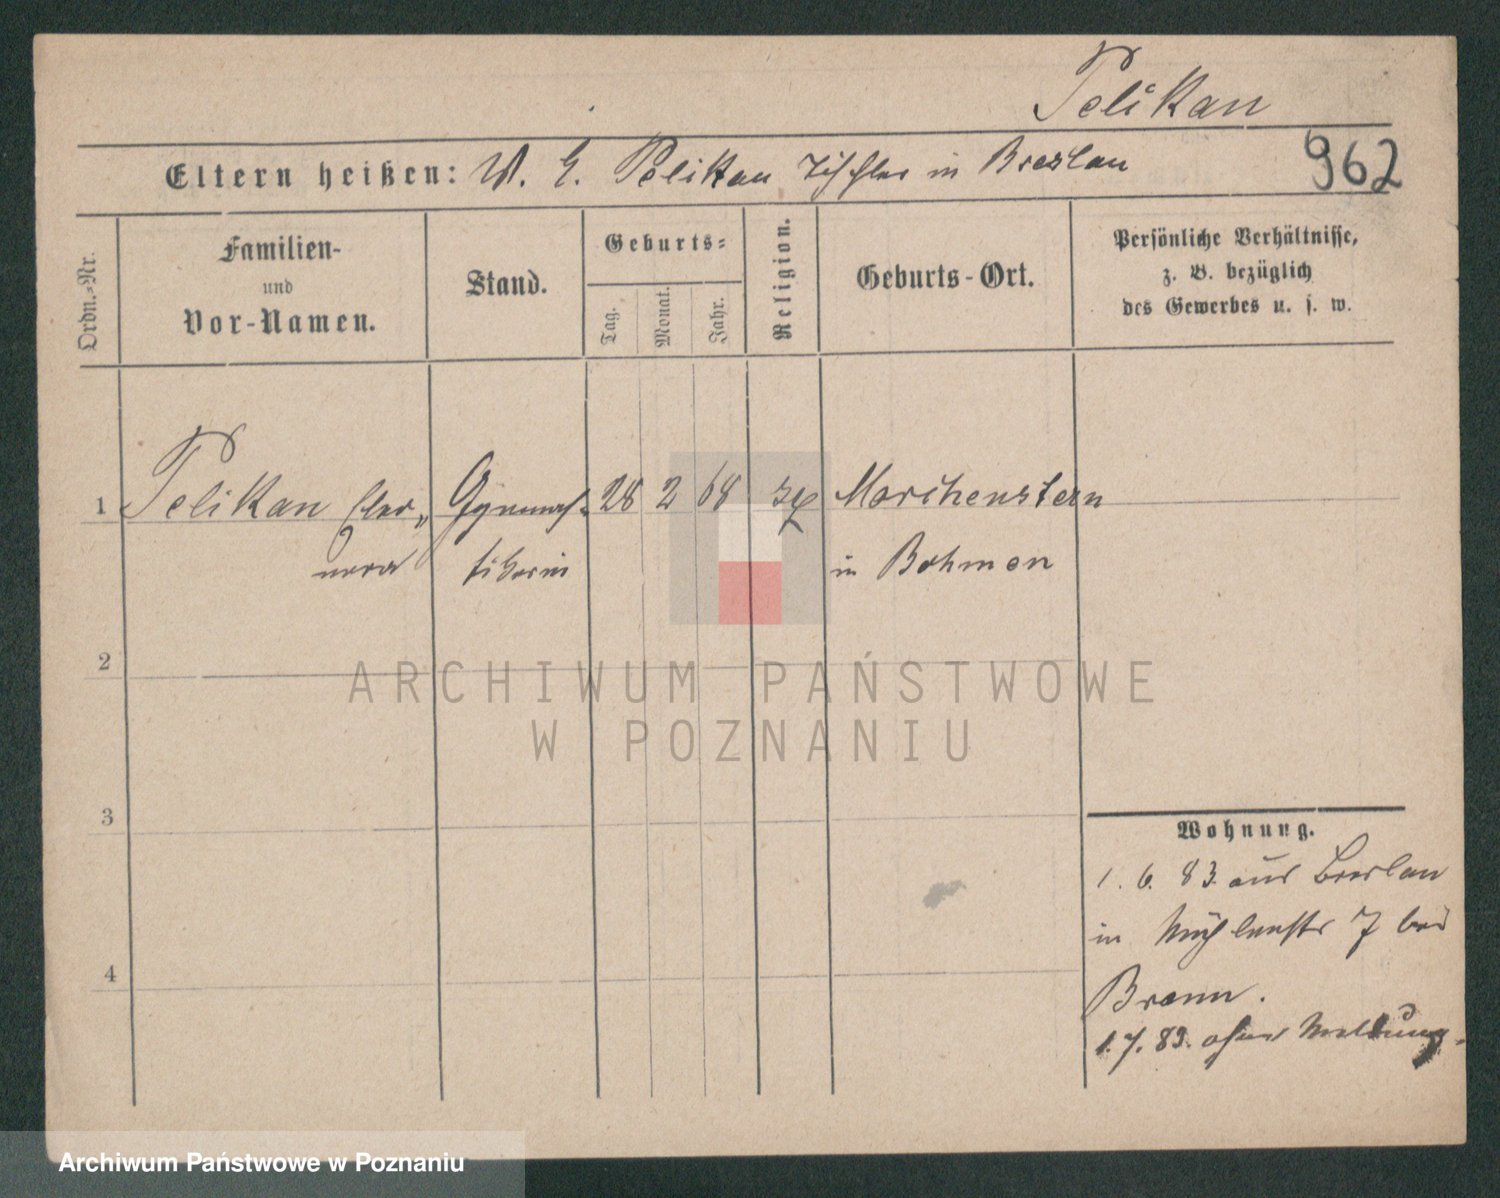 Pelikan
Eltern heißen: W. E. Pelikan Tischler in Breslau
962
Ordn.-Nr.
Familien-
und
Vor-Namen.
Stand.
Geburts-
Tag.
Monat.
Jahr.
Religion.
Geburts-Ort.
Persönliche Verhältnisse,
z. B. bezüglich
des Gewerbes u. s. w.
1 Pelikan Eleo„ Gymnas- 28 2 68 Marchenstern
nora tikerin in Bohmen
2
3
4
ARCHIWUM PAŃSTWOWE
W POZNANIU
Wohnung.
1. 6. 83. aus Breslau
in Mühlenstr 7 bei
Bramm.
1. 7. 83. ohne Meldung.
Archiwum Państwowe w Poznaniu